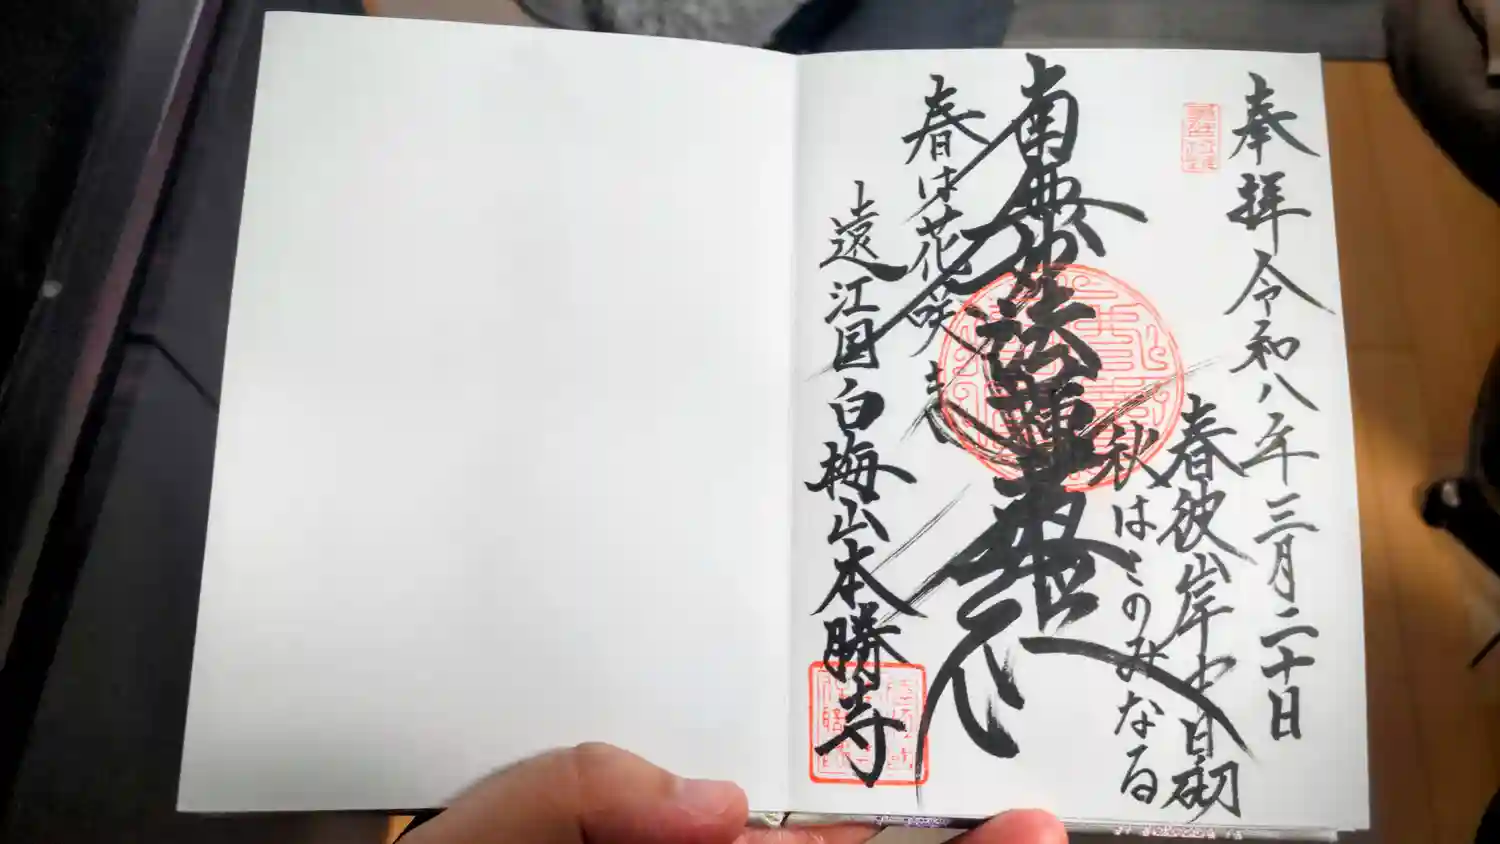 奉拝 令和八年三月二十日
春彼岸中日
秋はこのみなる
南無妙法蓮華経
春は花咲き
遠江国白梅山本勝寺